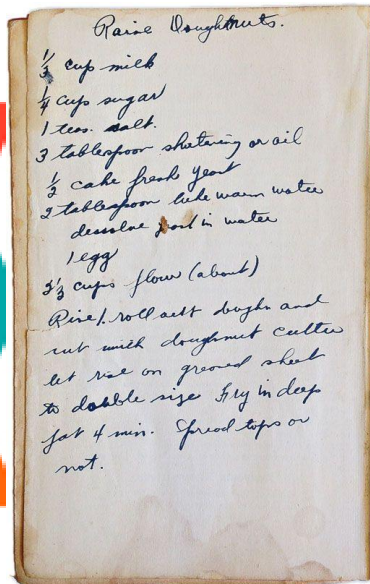 Raise Doughnuts.
1/3 cup milk
1/4 cup sugar
1 teas. salt.
3 tablespoon shortening or oil
1/2 cake fresh yeast
2 tablespoon luke warm water
dessolve yeast in water
1 egg
3 1/3 cups flour (about)
Rise/. roll out dough and
cut with doughnut cutter
let rise on greased sheet
to double size Fry in deep
fat 4 min. Spread tops or
not.